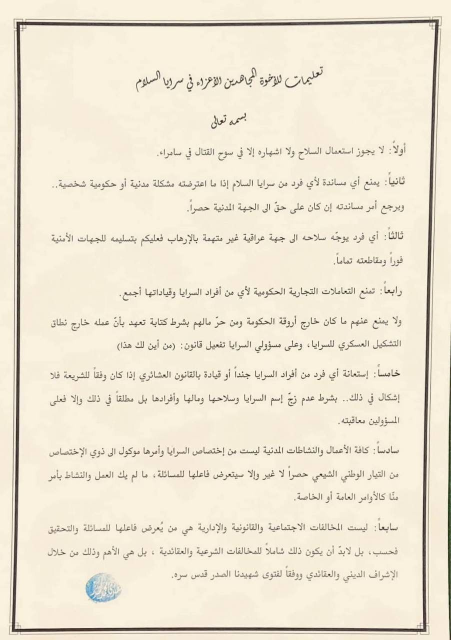 تعليمات للأخوة المجاهدين الأعزاء في سرايا السلام
بسمه تعالى
أولاً: لا يجوز استعمال السلاح ولا اشهاره إلا في سوح القتال في سامراء.
ثانياً: يمنع أي مساندة لأي فرد من سرايا السلام إذا ما اعترضته مشكلة مدنية أو حكومية شخصية..
ويرجع أمر مساندته إن كان على حقّ الى الجهة المدنية حصراً.
ثالثاً: أي فرد يوجّه سلاحه الى جهة عراقية غير متهمة بالإرهاب فعليكم بتسليمه للجهات الأمنية
فوراً ومقاطعته تماماً.
رابعاً: تمنع التعاملات التجارية الحكومية لأي من أفراد السرايا وقياداتها أجمع.
ولا يمنع عنهم ما كان خارج أروقة الحكومة ومن حرّ مالهم بشرط كتابة تعهد بأنّ عمله خارج نطاق
التشكيل العسكري للسرايا، وعلى مسؤولي السرايا تفعيل قانون: (من أين لك هذا)
خامساً: إستعانة أي فرد من أفراد السرايا جنداً أو قيادة بالقانون العشائري إذا كان وفقاً للشريعة فلا
إشكال في ذلك.. بشرط عدم زجّ إسم السرايا وسلاحها ومالها وأفرادها بل مطلقاً في ذلك وإلا فعلى
المسؤولين معاقبته.
سادساً: كافة الأعمال والنشاطات المدنية ليست من إختصاص السرايا وأمرها موكول الى ذوي الإختصاص
من التيار الوطني الشيعي حصراً لا غير وإلا سيتعرض فاعلها للمسائلة، ما لم يك العمل والنشاط بأمر
منّا كالأوامر العامة أو الخاصة.
سابعاً: ليست المخالفات الاجتماعية والقانونية والإدارية هي من يُعرض فاعلها للمسائلة والتحقيق
فحسب، بل لابدّ أن يكون ذلك شاملاً للمخالفات الشرعية والعقائدية ، بل هي الأهم وذلك من خلال
الإشراف الديني والعقائدي ووفقاً لفتوى شهيدنا الصدر قدس سره.